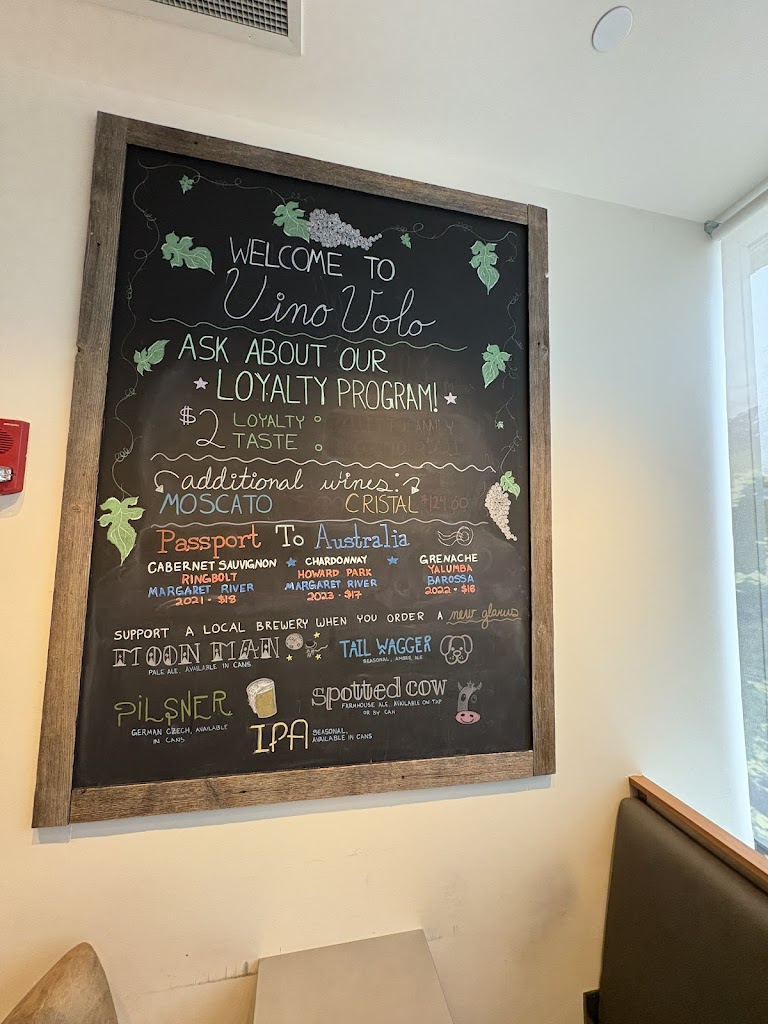 WELCOME TO
Vino Volo
ASK ABOUT OUR
LOYALTY PROGRAM!
$2 LOYALTY
TASTE
additional wines:
MOSCATO CRISTAL
Passport To Australia
CABERNET SAUVIGNON
RINGBOLT
MARGARET RIVER
2021 • $18
CHARDONNAY
HOWARD PARK
MARGARET RIVER
2023 • $17
GRENACHE
YALUMBA
BAROSSA
2022 • $16
SUPPORT A LOCAL BREWERY WHEN YOU ORDER A new glarus
MOON MAN
PALE ALE, AVAILABLE IN CANS
TAIL WAGGER
SEASONAL, AMBER ALE
PILSNER
GERMAN CZECH, AVAILABLE
IN CANS
spotted cow
FARMHOUSE ALE, AVAILABLE ON TAP
OR BY CAN
IPA
SEASONAL,
AVAILABLE IN CANS